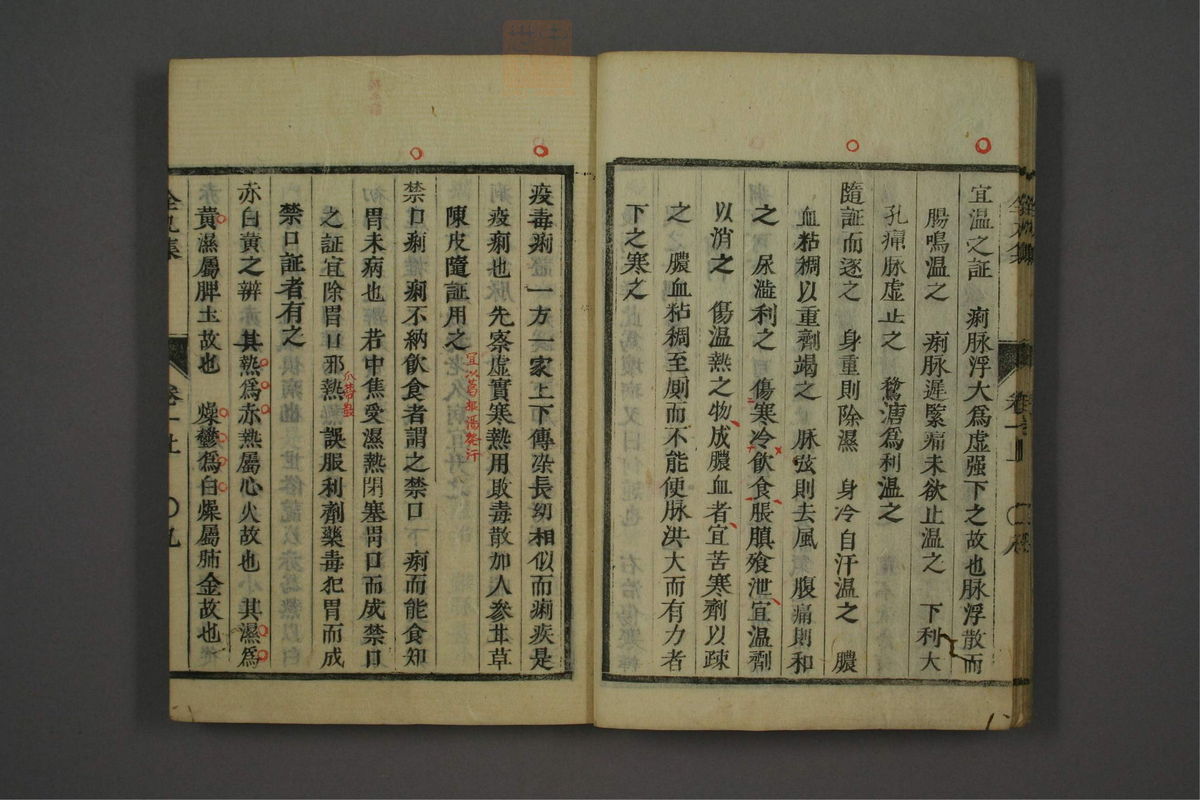 宜温之証 痢脉浮大爲虚强下之故也脉浮散而
腸鳴温之 痢脉遲緊痛未欲止温之 下利大
孔痛脉虚止之 鶩溏爲利温之
隨証而逐之 身重則除濕 身冷自汗温之 膿
血粘稠以重劑竭之 脉弦則去風 腹痛則和
之 尿澁利之 傷寒冷飲食脹䐜飱泄宜温劑
以消之 傷温熱之物成膿血者宜苦寒劑以疎
之 膿血粘稠至厠而不能便脉洪大而有力者
下之寒之
疫毒痢 一方一家上下傳染長幼相似而痢疾是
疫痢也先察虚實寒熱用敗毒散加人參甘草
陳皮隨証用之
宜以葛根湯發汗
禁口痢 痢不納飲食者謂之禁口 痢而能食知
胃未病也 若中焦受濕熱閉塞胃口而成禁口
之証宜除胃口邪熱 誤服利劑藥毒犯胃而成
禁口証者有之
赤白黄之辨 其熱爲赤熱屬心火故也 其濕爲
黄濕屬脾土故也 燥鬱爲白燥屬肺金故也
全九集
卷二上
〇九